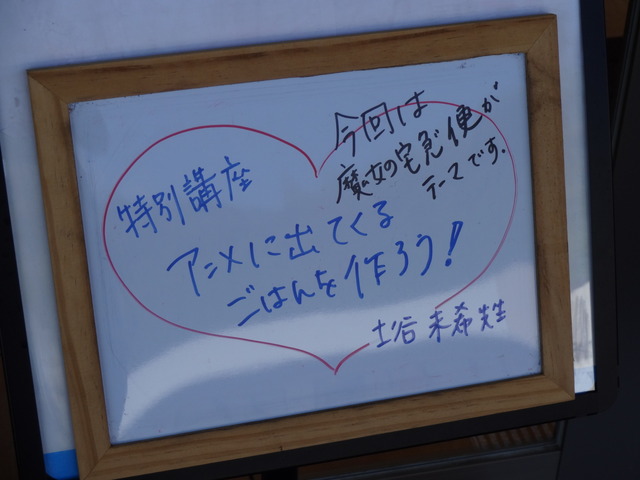 特別講座
今回は
魔女の宅急便が
テーマです.
アニメに出てくる
ごはんを作ろう!
土谷未希先生